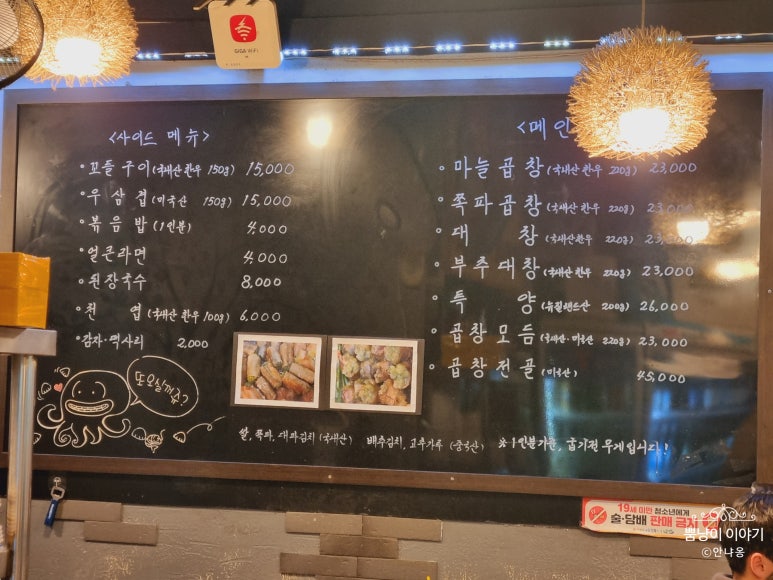 GiGA WiFi
<사이드 메뉴>
• 꼬들구이 (국내산 한우 150g) 15,000
• 우삼겹 (미국산 150g) 15,000
• 볶음밥 (1인분) 4,000
• 얼큰라면 4,000
• 된장국수 8,000
• 천엽 (국내산 한우 100g) 6,000
• 감자·떡사리 2,000
또오실꺼죠?
<메인
• 마늘곱창 (국내산 한우 220g) 23,000
• 쪽파곱창 (국내산 한우 220g) 23,000
• 대창 (국내산 한우 220g) 23,000
• 부추대창 (국내산 한우 220g) 23,000
• 특양 (뉴질랜드산 200g) 26,000
• 곱창모듬 (국내산·미국산 220g) 23,000
• 곱창전골 (미국산) 45,000
쌀, 쪽파, 대파김치 (국내산) 배추김치, 고추가루 (중국산) ※ 1인분기준, 굽기전 무게입니다!
19세 미만 청소년에게
술·담배 판매 금지
뽐냥이 이야기
©안냐옹